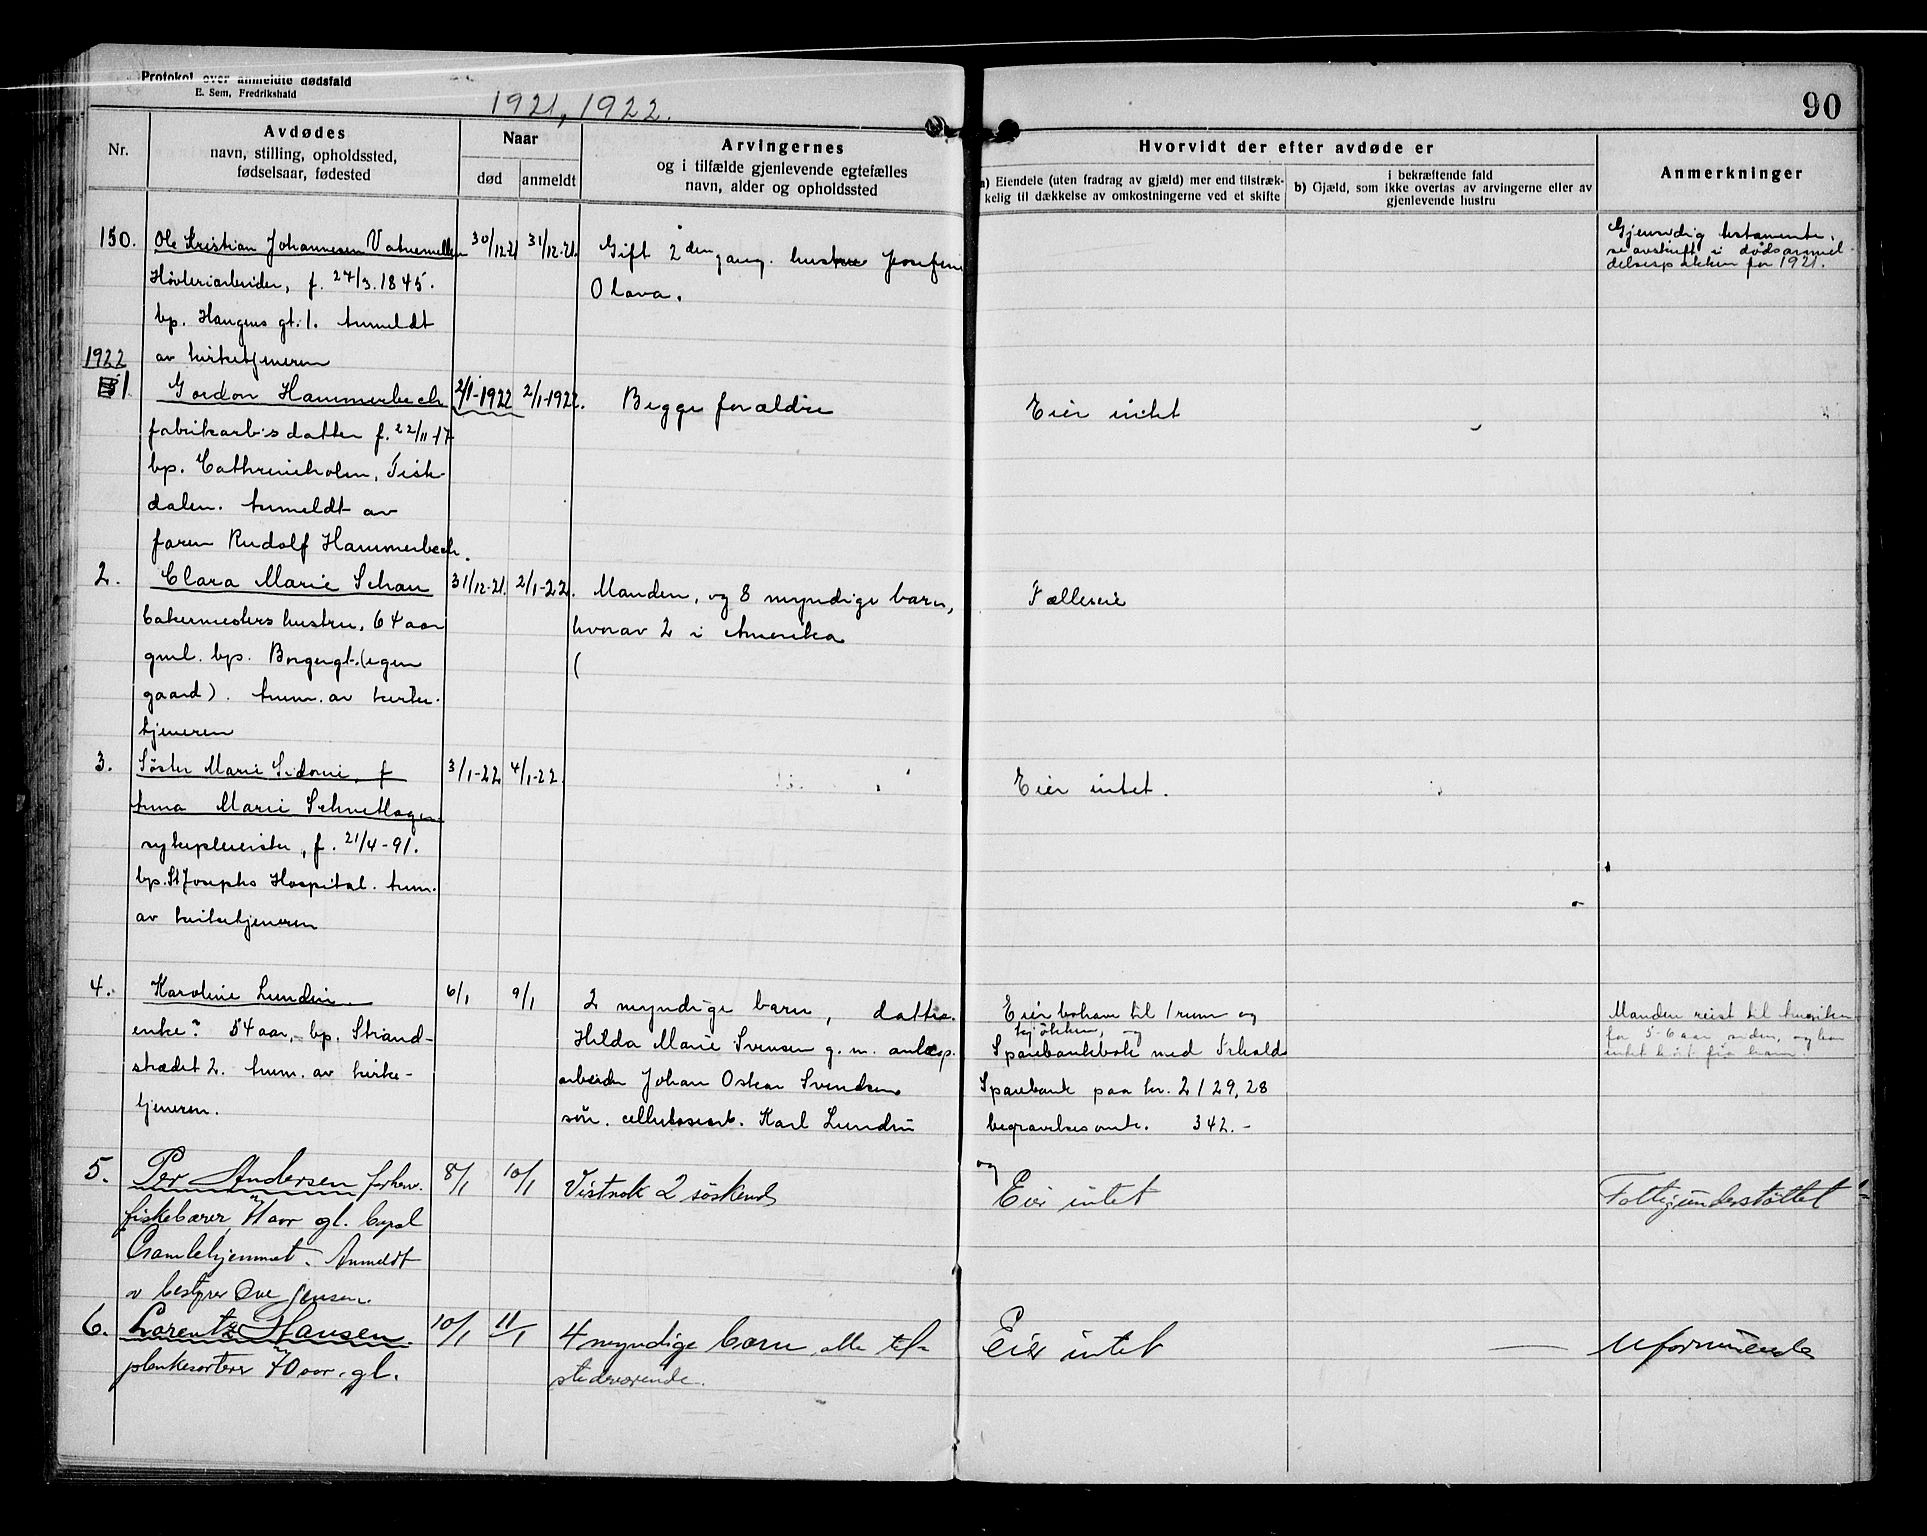 Protokol over anmeldte dødsfald
E. Sem, Fredrikshald
1921, 1922.
90
Nr.
Avdødes
navn, stilling, opholdssted,
fødselsaar, fødested
Naar
død
anmeldt
Arvingernes
og i tilfælde gjenlevende egtefælles
navn, alder og opholdssted
Hvorvidt der efter avdøde er
a) Eiendele (uten fradrag av gjæld) mer end tilstræk-
kelig til dækkelse av omkostningerne ved et skifte
i bekræftende fald
b) Gjæld, som ikke overtas av arvingerne eller av
gjenlevende hustru
Anmerkninger
150.
Ole Kristian Johannesen
Høvleriarbeider, f. 27/3.1845.
bp. Haugens gt. 1. Anmeldt
av kirketjeneren
30/12.21
31/12-21.
Gift 2den gang. hustru Josefine
Olava.
Gjensidig testamente,
se avskrift i dødsanmel-
delsespakken for 1921.
1922
1
Gordon Hammerbeck
fabrikarb.s datter f. 22/11-17
bp. Cathrineholm, Tisk-
dalen. Anmeldt av
faren Rudolf Hammerbeck.
2/1-1922
2/1-1922.
Begge forældre
Eier intet
2.
Clara Marie Schau
bakermesters hustru, 64 aar
gml. bp. Borgergt. (egen
gaard). Anm. av kirke-
tjeneren
31/12-21.
2/1-22.
Manden, og 8 myndige barn,
hvorav 2 i Amerika
(
Fælleseie
3.
Søster Marie Sidonie, f
Anna Marie
sykepleierske, f. 21/4-91.
bp. St Josephs Hospital. Anm.
av kirketjeneren
3/1-22
4/1-22.
Eier intet.
4.
Karoline Lundin
enke? 54 aar, bp. Strand-
strædet 2. Anm. av kirke-
tjeneren.
6/1
9/1
2 myndige barn, datter
Hilda Marie Svensen g. m. anlægs.
arbeider Johan Oskar Svendsen
søn. cellulosearb. Karl Lundin
Eier bohave til 1 rum og
kjøkken, og
Sparebankbok med Frhald
Sparebank paa kr. 2129,28
begravelsesomk. 342.-
Manden reist til Amerika
for 5-6 aar siden, og har
intet hørt fra ham
5.
Per Andersen forhenv.
fiskebærer, 71 aar gl. bopal
Gamlehjemmet. Anmeldt
av bestyrer Ove Jensen.
8/1
10/1
Vistnok 2 søskend
og
Eier intet
Fattigunderstøttet
6.
Lorentz Hansen.
plankesorterer 70 aar. gl.
10/1
11/1
4 myndige barn, alle til-
stedeværende.
Eier intet
—
Uformuende